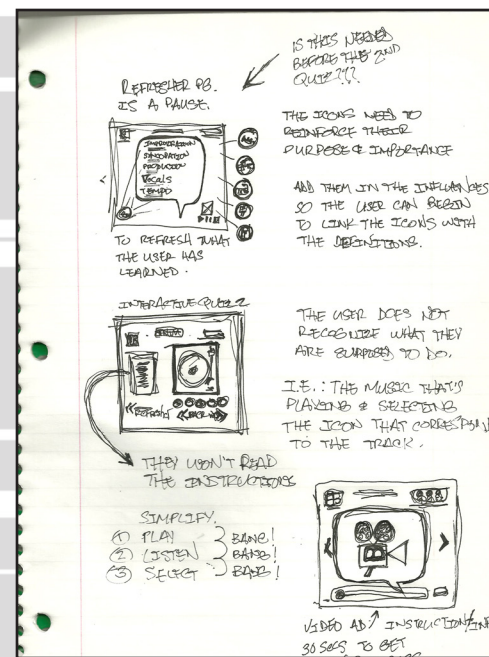 IS THIS NEEDED
BEFORE THE 2ND
QUIZ???
REFRESHER PG.
IS A PAUSE.
IMPROVISATION
SYNCOPATION
PRODUCTION
VOCALS
TEMPO
TO REFRESH WHAT
THE USER HAS
LEARNED.
THE ICONS NEED TO
REINFORCE THEIR
PURPOSE & IMPORTANCE
ADD THEM IN THE INFLUENCES
SO THE USER CAN BEGIN
TO LINK THE ICONS WITH
THE DEFINITIONS.
INTERACTIVE QUIZ 2
THE USER DOES NOT
RECOGNIZE WHAT THEY
ARE SUPPOSED TO DO.
I.E.: THE MUSIC THAT'S
PLAYING & SELECTING
THE ICON THAT CORRESPON
TO THE TRACK.
THEY WON'T READ
THE INSTRUCTIONS
SIMPLIFY.
1 PLAY BANG!
2 LISTEN BANG!
3 SELECT BANG!
VIDEO AD? INSTRUCTION/IN
30 SECS TO GET